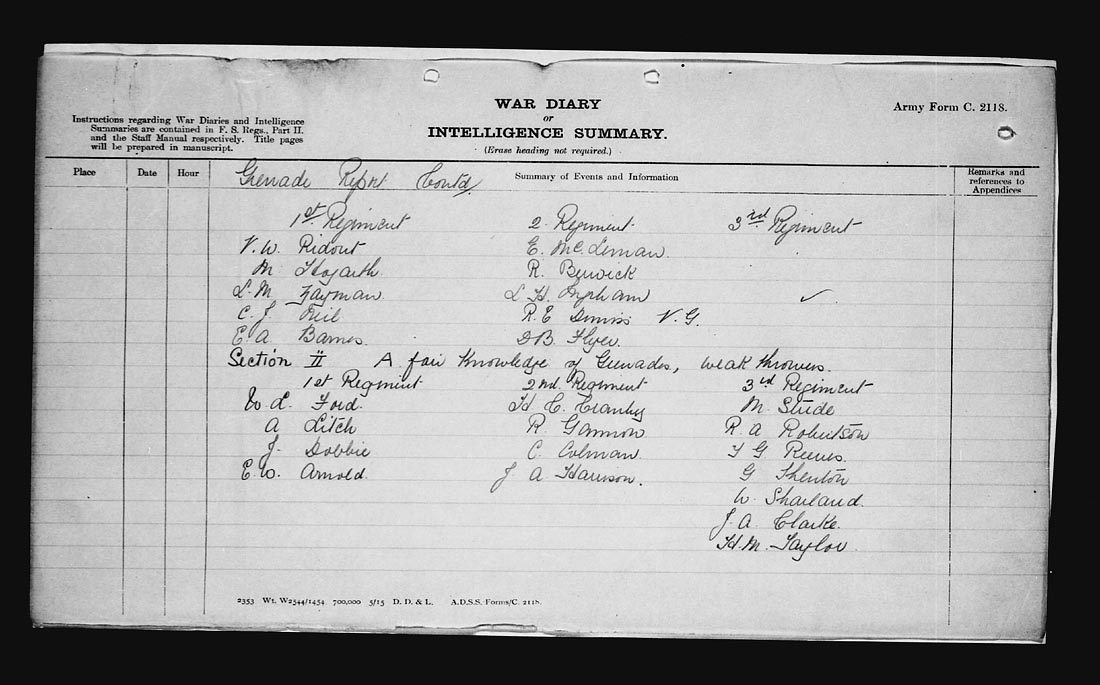 WAR DIARY
or
INTELLIGENCE SUMMARY.
(Erase heading not required.)
Army Form C. 2118.
Instructions regarding War Diaries and Intelligence
Summaries are contained in F. S. Regs., Part II.
and the Staff Manual respectively. Title pages
will be prepared in manuscript.
Place Date Hour Summary of Events and Information Remarks and
references to
Appendices
Grenade Report Contd
1st Regiment 2 Regiment 3rd Regiment
V. W. Ridout E. McLeman
M. Hogarth R. Berwick
L. M. Zayman L H ✓
C. J. Neil R. E Dennis V. G.
E. A. Barnes D B. Flyer.
Section II A fair knowledge of Grenades, weak throwers.
1st Regiment 2nd Regiment 3rd Regiment
W L. Ford. H C. Cranby M. Stride
A Litch R. Gannon R A Robertson
J. Dobbie C. Colman T G Reeves
E. W. Arnold. J A Harrison. G Shenton
W. Sharland.
J. A. Clarke.
H. M. Taylor
2353 Wt. W2544/1454 700,000 5/15 D. D. & L. A.D.S.S. Forms/C. 2118.